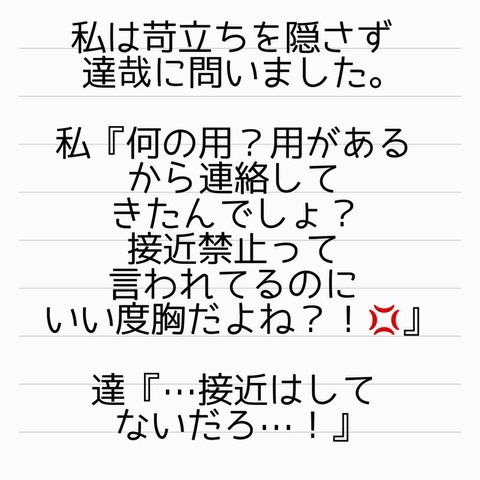 私は苛立ちを隠さず
達哉に問いました。
私『何の用？用がある
から連絡して
きたんでしょ？
接近禁止って
言われてるのに
いい度胸だよね？！💢』
達『…接近はして
ないだろ…！』